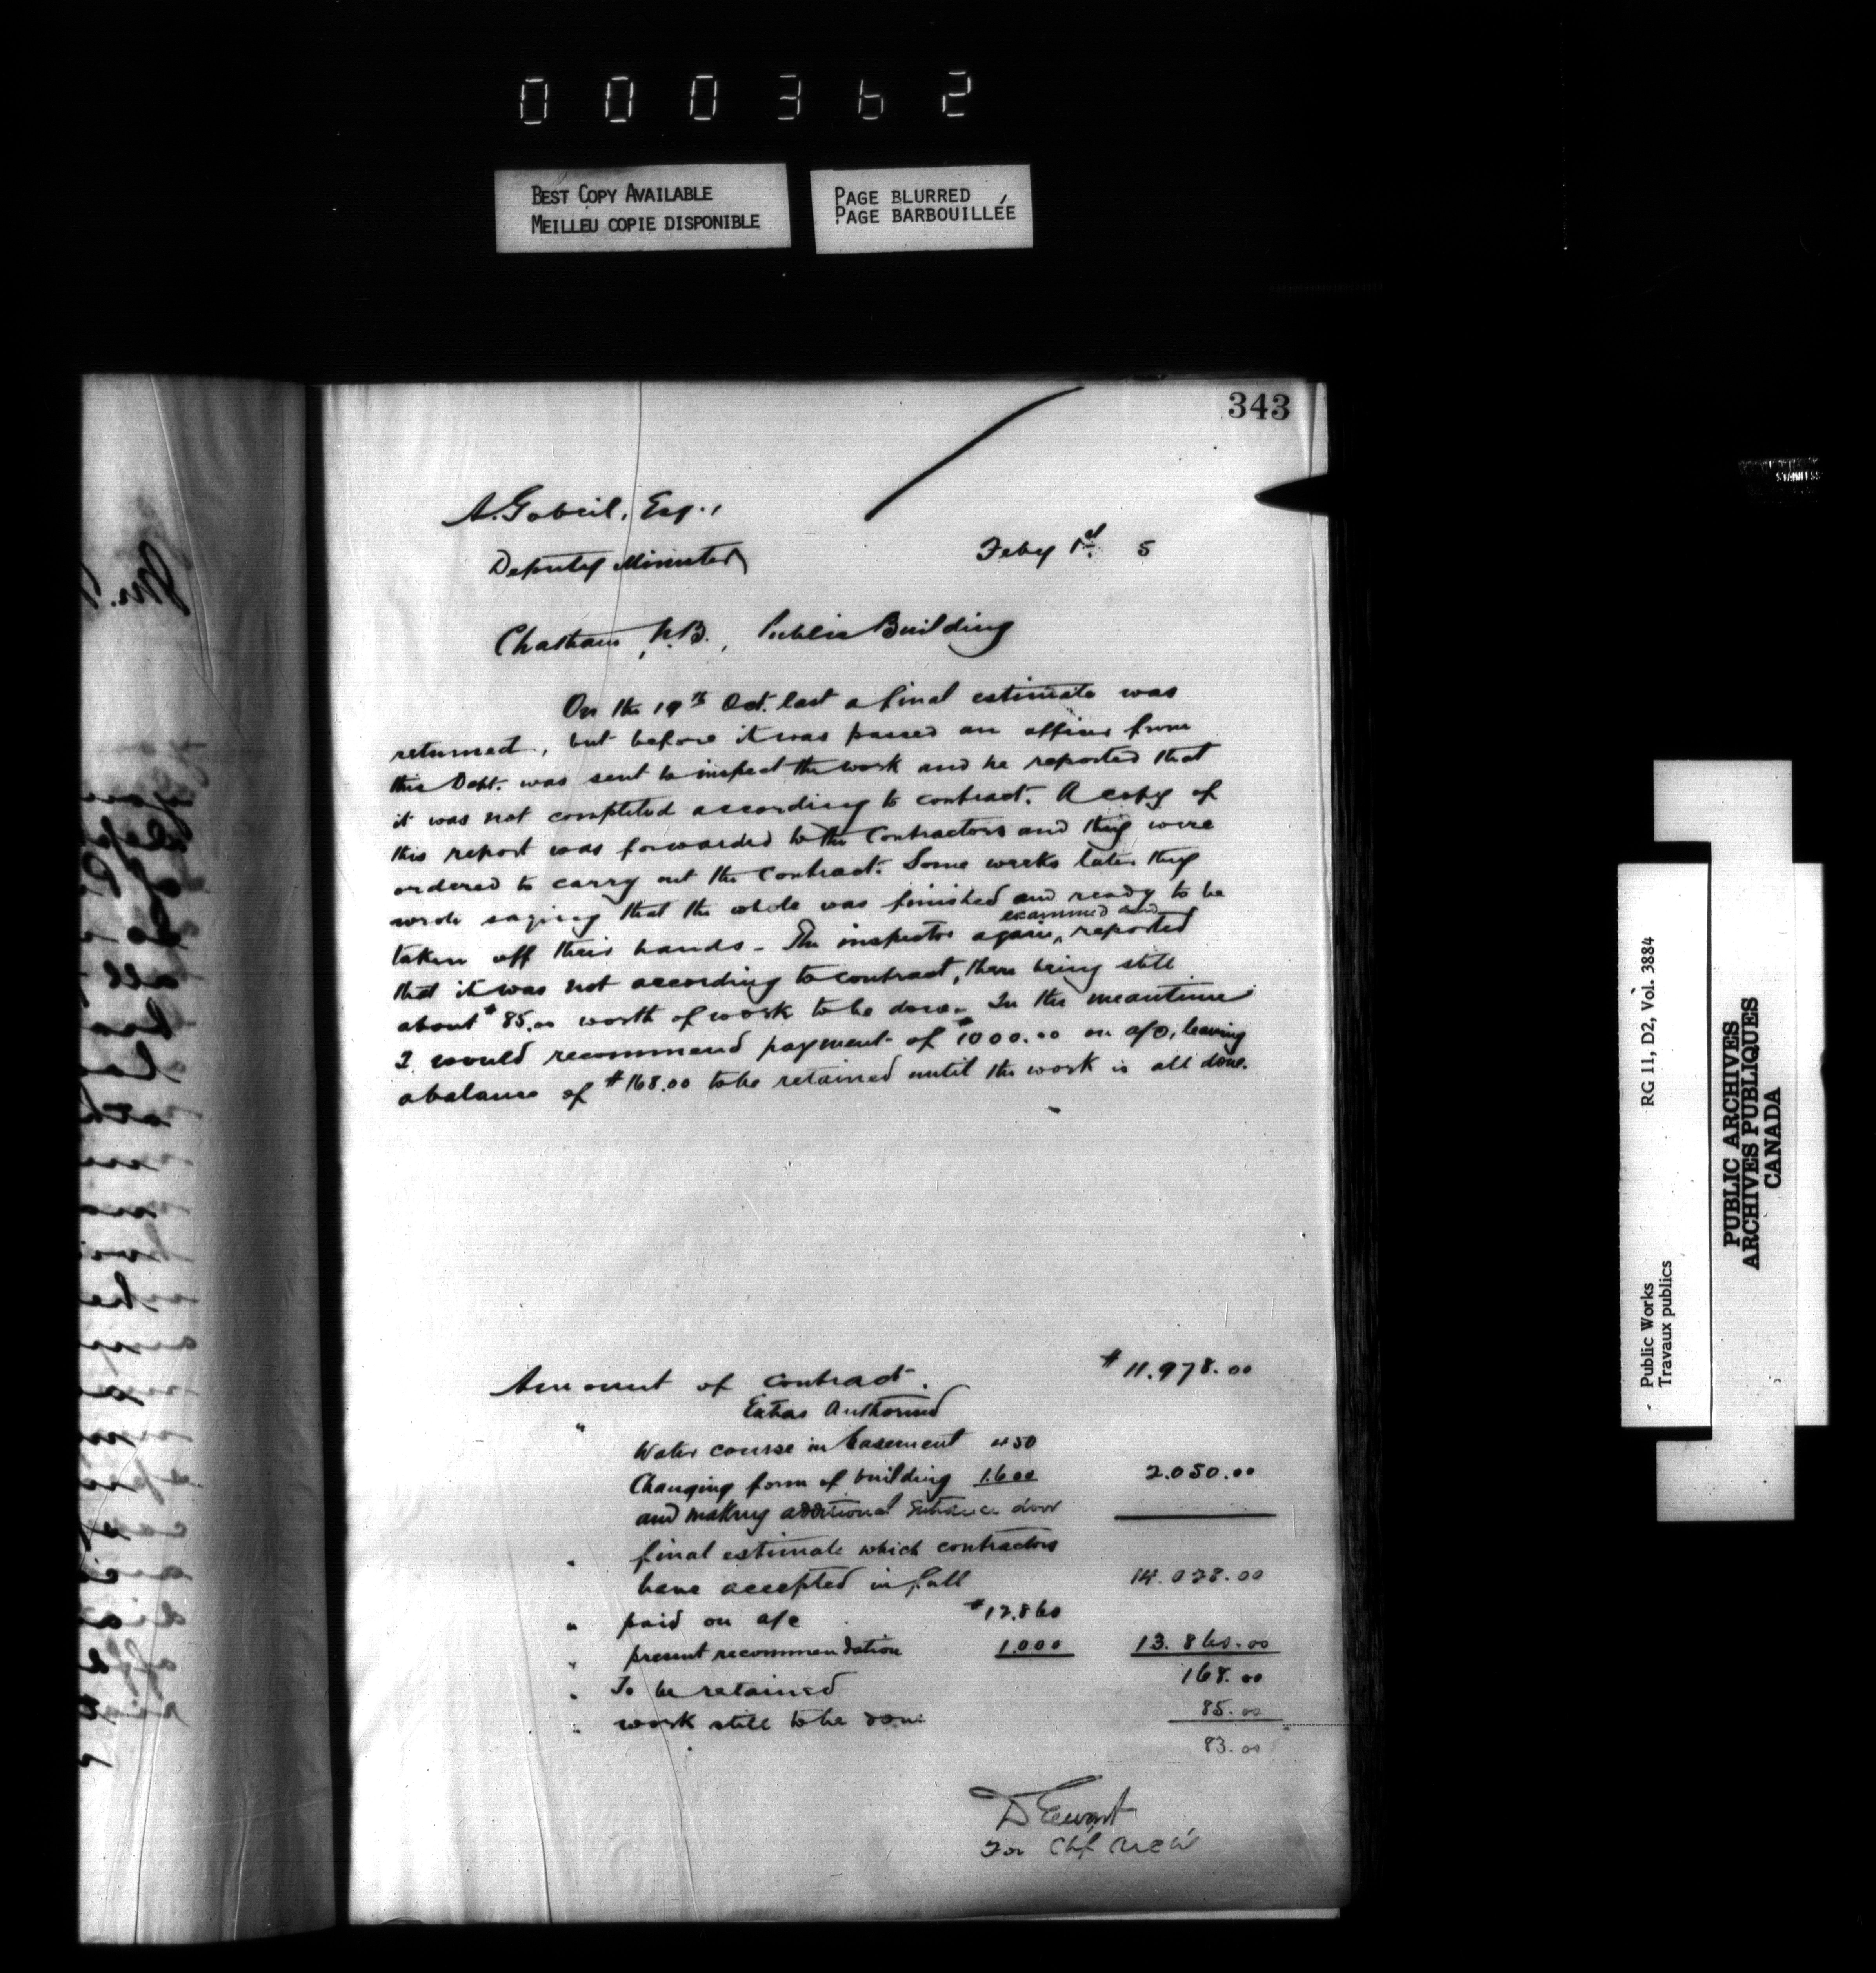 000362
BEST COPY AVAILABLE
MEILLEU COPIE DISPONIBLE
PAGE BLURRED
PAGE BARBOUILLÉE
343
A. Gobeil, Esq.,
Deputy Minister
Feby 1st 5
Chatham, N.B., Public Building
On the 19th Oct. last a final estimate was
returned, but before it was passed an officer from
this Dept. was sent to inspect the work and he reported that
it was not completed according to contract. A copy of
this report was forwarded to the Contractors and they were
ordered to carry out the Contract. Some weeks later they
wrote saying that the whole was finished and ready to be
taken off their hands - The inspector again examined and reported
that it was not according to contract, there being still
about $85.00 worth of work to be done. In the meantime
I would recommend payment of $1000.00 on a/c, leaving
a balance of $168.00 to be retained until the work is all done.
Amount of contract. $11.978.00
" Extras Authorised
Water course in basement 450
Changing form of building 1.600 2.050.00
and making additional entrance door
" final estimate which contractors
have accepted in full 14.028.00
" paid on a/c $12.860
" present recommendation 1.000 13.860.00
" To be retained 168.00
" work still to be done 85.00
83.00
D Ewart
For Chf Arch
RG 11, D2, Vol. 3884
Public Works
Travaux publics
PUBLIC ARCHIVES
ARCHIVES PUBLIQUES
CANADA